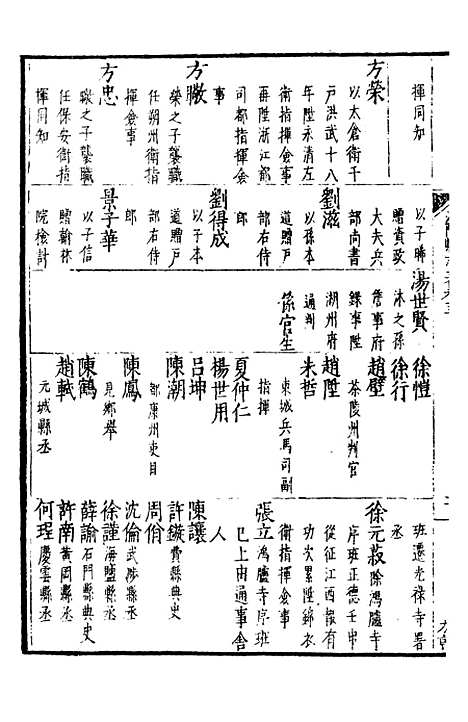 揮同知
方榮
以太倉衛千
戶洪武十八
年陞永清左
衛指揮僉事
再陞浙江都
司都指揮僉
事
方
榮之子襲職
任朔州衛指
揮僉事
方忠
之子襲職
任保安衛指
揮同知
以子晞
贈資政
大夫兵
部尚書
劉滋
以孫本
道贈戶
部右侍
郎
劉得成
以子本
道贈戶
部右侍
郎
景子華
以子信
贈翰林
院檢討
湯世賢
沐之孫
詹事府
錄事陞
湖州府
通判
孫官生
徐愷
徐行
趙壁
茶陵州判官
趙陞
朱哲
東城兵馬司副
指揮
夏仲仁
楊世用
呂坤
陳潮
都康州吏目
陳鳳
見鄉舉
陳鶴
趙軾
元城縣丞
班遷光祿寺署
丞
徐元菽 除鴻臚寺
序班正德壬申
從征江西報有
功次累陞錦衣
衛指揮僉事
張立 鴻臚寺序班
已上由通事舍
人
陳讓
許 費縣典史
周俏
沈倫 武涉縣丞
徐謹 海鹽縣丞
薛諭 石門縣典史
許南 黃岡縣丞
何瑆 慶雲縣丞